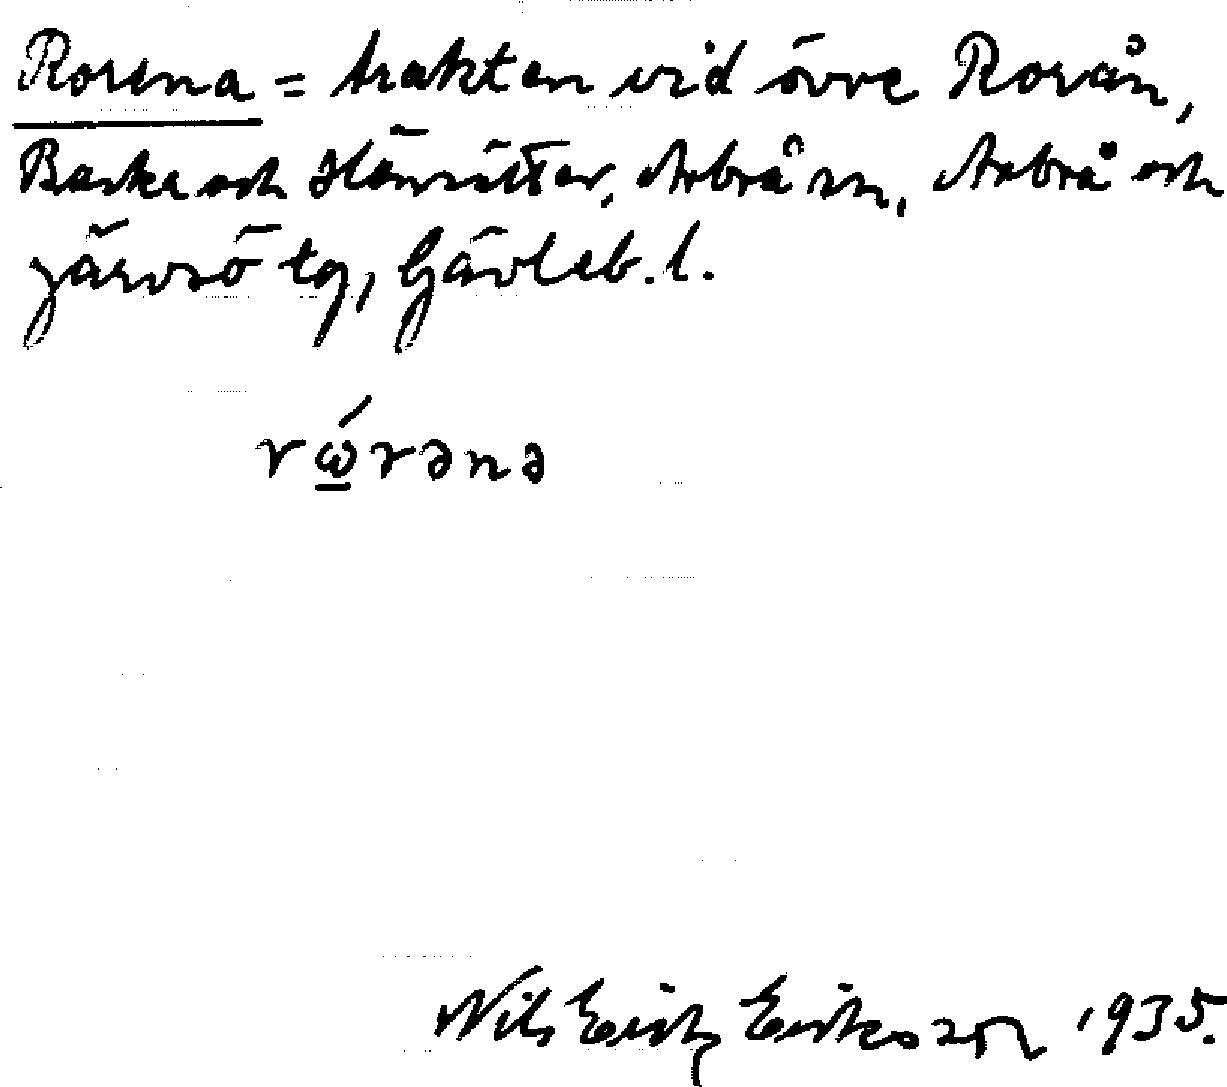 Rorena = trakten vid övre Rorån,
Backa och Hänsätter, Arbrå sn, Arbrå och
Järvsö tg, Gävleb. l.
rώrənə
Nils Erik Eriksson 1935.